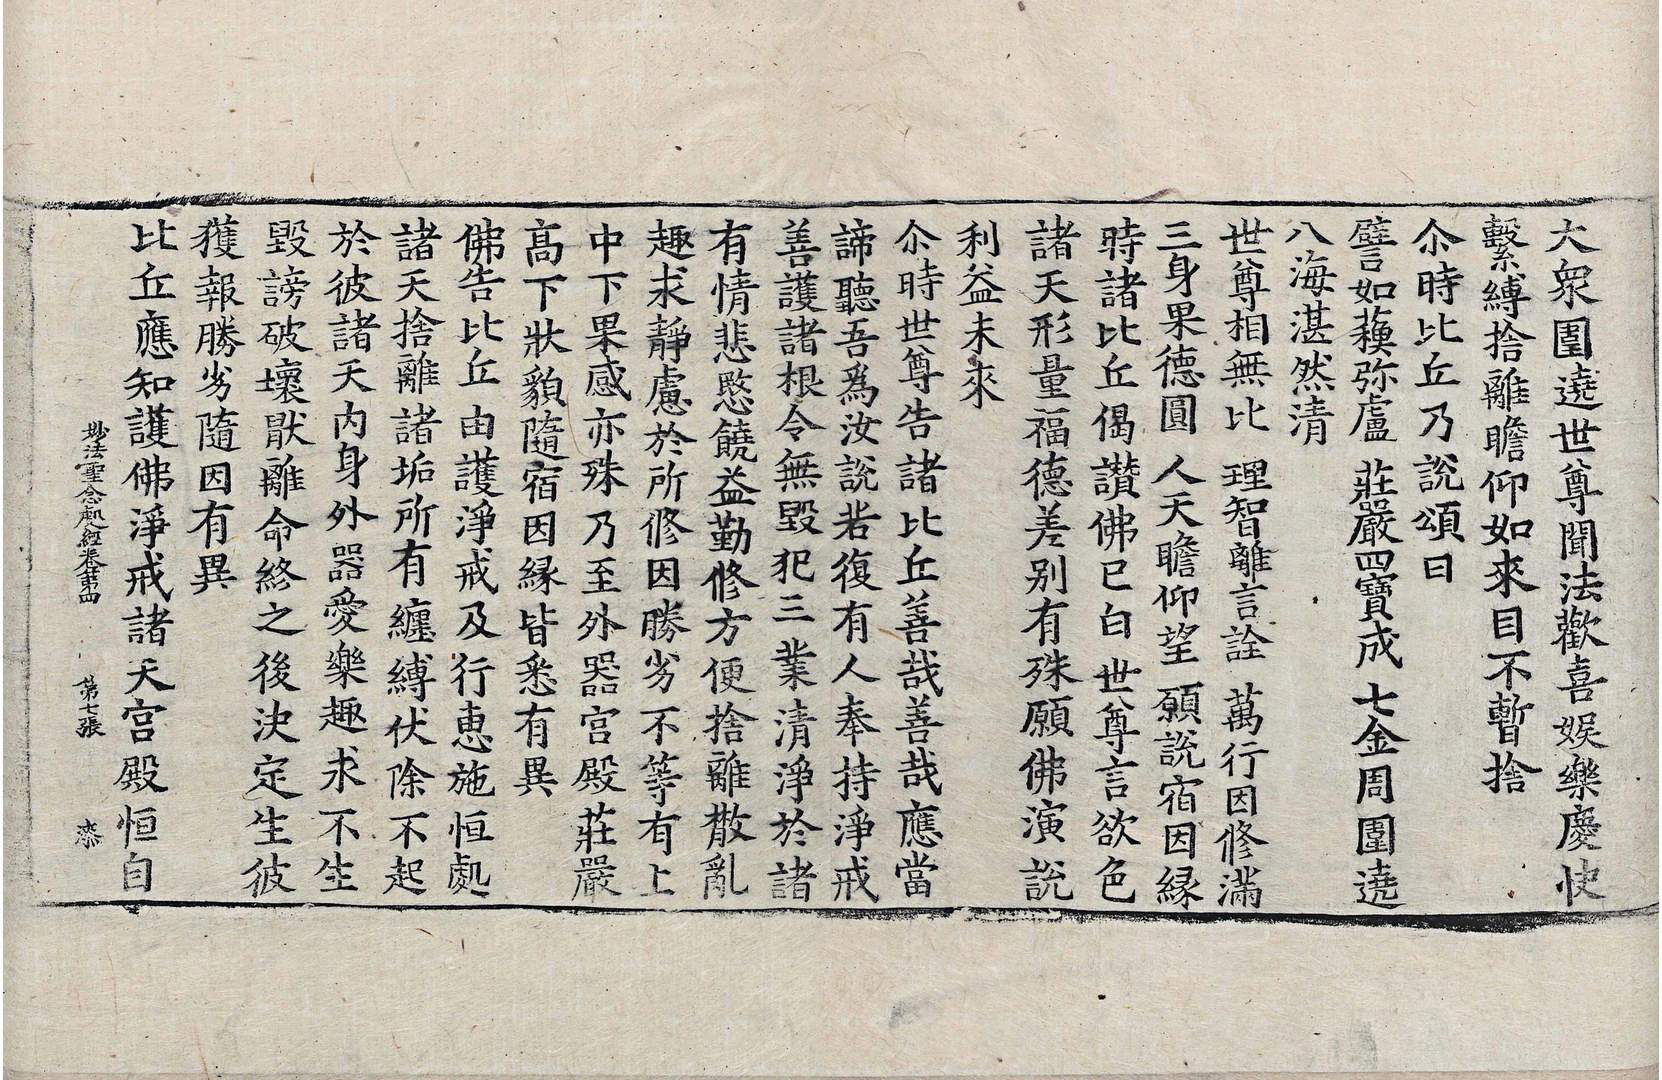 大衆圍遶世尊聞法歡喜娛樂慶快
繫縛捨離瞻仰如來目不暫捨
尒時比丘乃說頌曰
譬如蘓弥盧 莊嚴四寶成 七金周圍遶
八海湛然清
世尊相無比 理智離言詮 萬行因修滿
三身果德圓 人天瞻仰望 願說宿因縁
時諸比丘偈讚佛已白世尊言欲色
諸天形量福德差别有殊願佛演說
利益未來
尒時世尊告諸比丘善哉善哉應當
諦聽吾爲汝說若復有人奉持淨戒
善護諸根令無毀犯三業清淨於諸
有情悲愍饒益勤修方便捨離散亂
趣求靜慮於所修因勝劣不等有上
中下果感亦殊乃至外器宮殿莊嚴
高下狀貌隨宿因縁皆悉有異
佛告比丘由護淨戒及行惠施恒處
諸天捨離諸垢所有纏縛伏除不起
於彼諸天内身外器愛樂趣求不生
毀謗破壞猒離命終之後決定生彼
獲報勝劣隨因有異
妙法聖念處經卷第四 第七張
比丘應知護佛淨戒諸天宮殿恒自